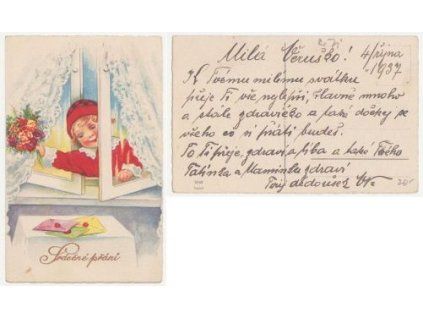 Srdečné přání
Milá Věruško! 4/října
1937
K Tvému milému svátku
přeje Ti vše nejlepší, hlavně mnoho
a stále zdravíčko a také dočkej se
všeho co si přáti budeš.
To Ti přeje, zdraví a líbá a také Tvého
Tatínka a Maminku zdraví
Tvůj dědoušek